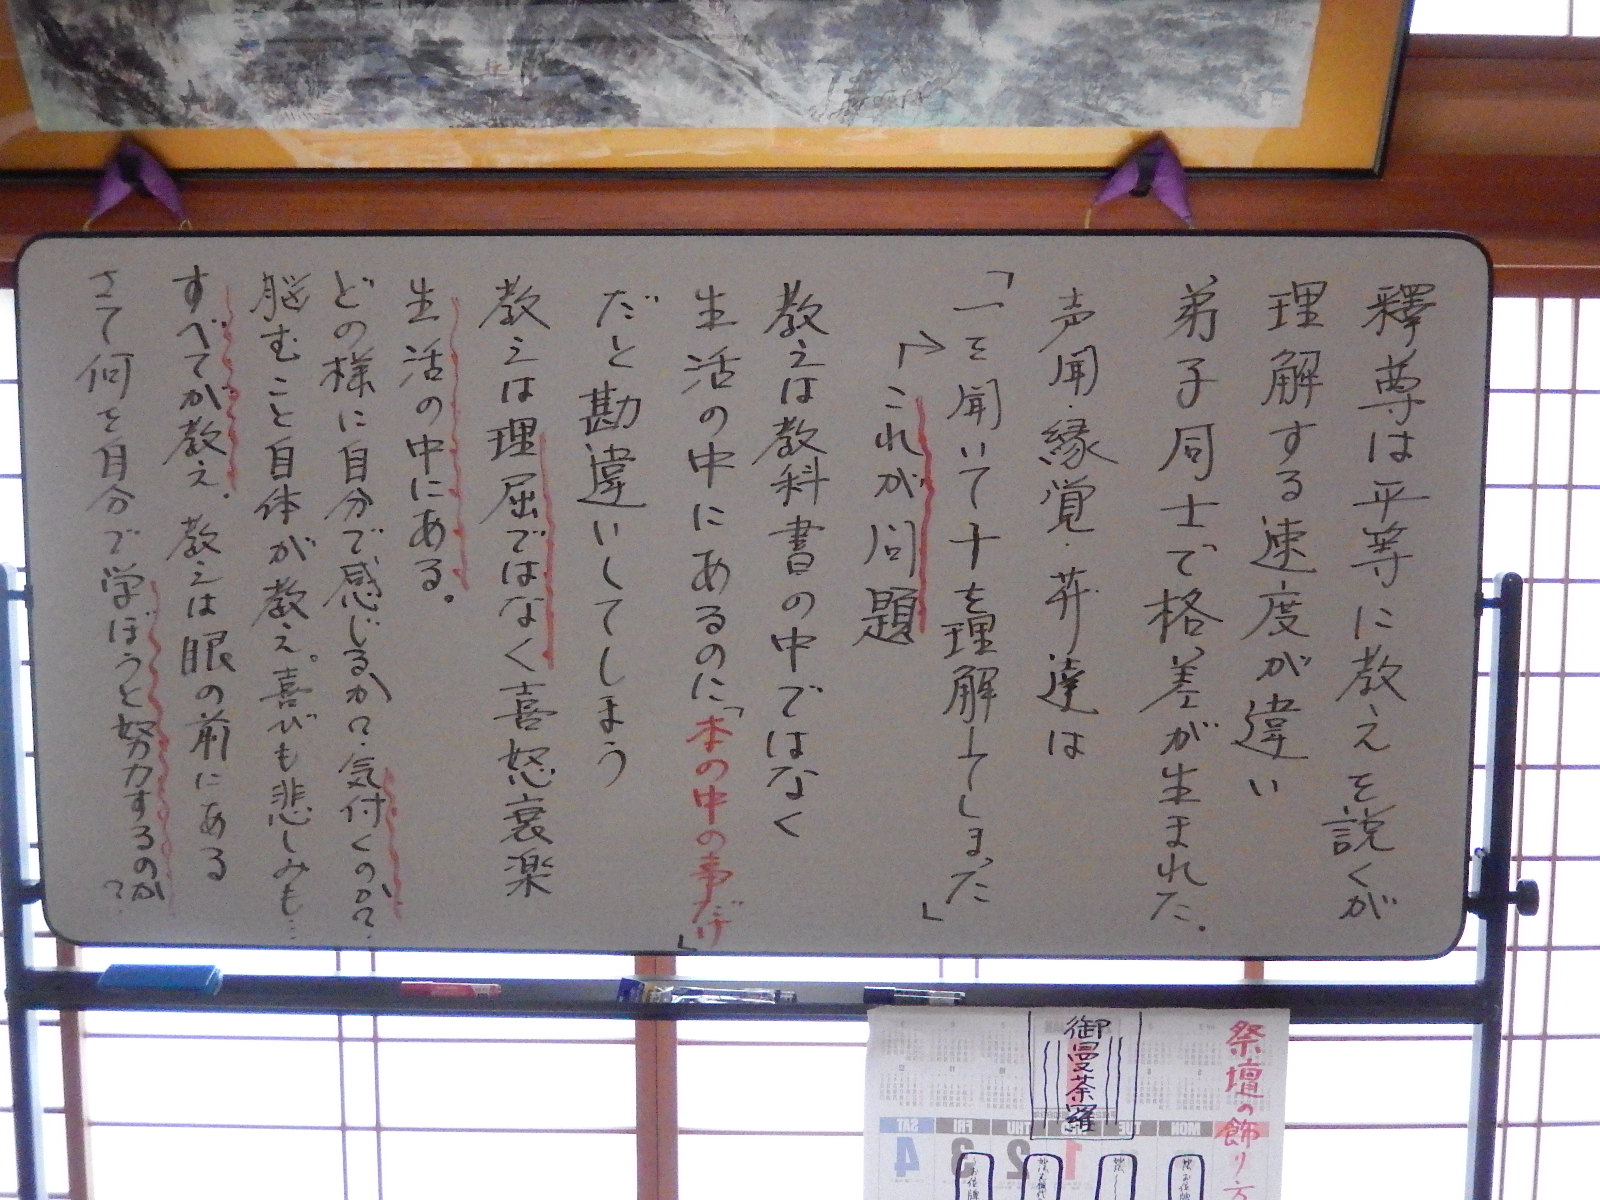 釋尊は平等に教えを説くが
理解する速度が違い
弟子同士で格差が生まれた.
声聞.縁覚.䒑達は
「一を聞いて十を理解してしまった」
これが問題
教えは教科書の中ではなく
生活の中にあるのに「本の中の事だけ」
だと勘違いしてしまう
教えは理屈ではなく喜怒哀楽
生活の中にある.
どの様に自分で感じるか?.気付くのか?
脳むこと自体が教え。喜びも悲しみも…
すべてが教え.教えは眼の前にある
さて何を自分で学ぼうと努力するのか?
祭壇の飾り方
御曼荼羅
MON
TUE
THU
FRI
SAT
1
2
3
4